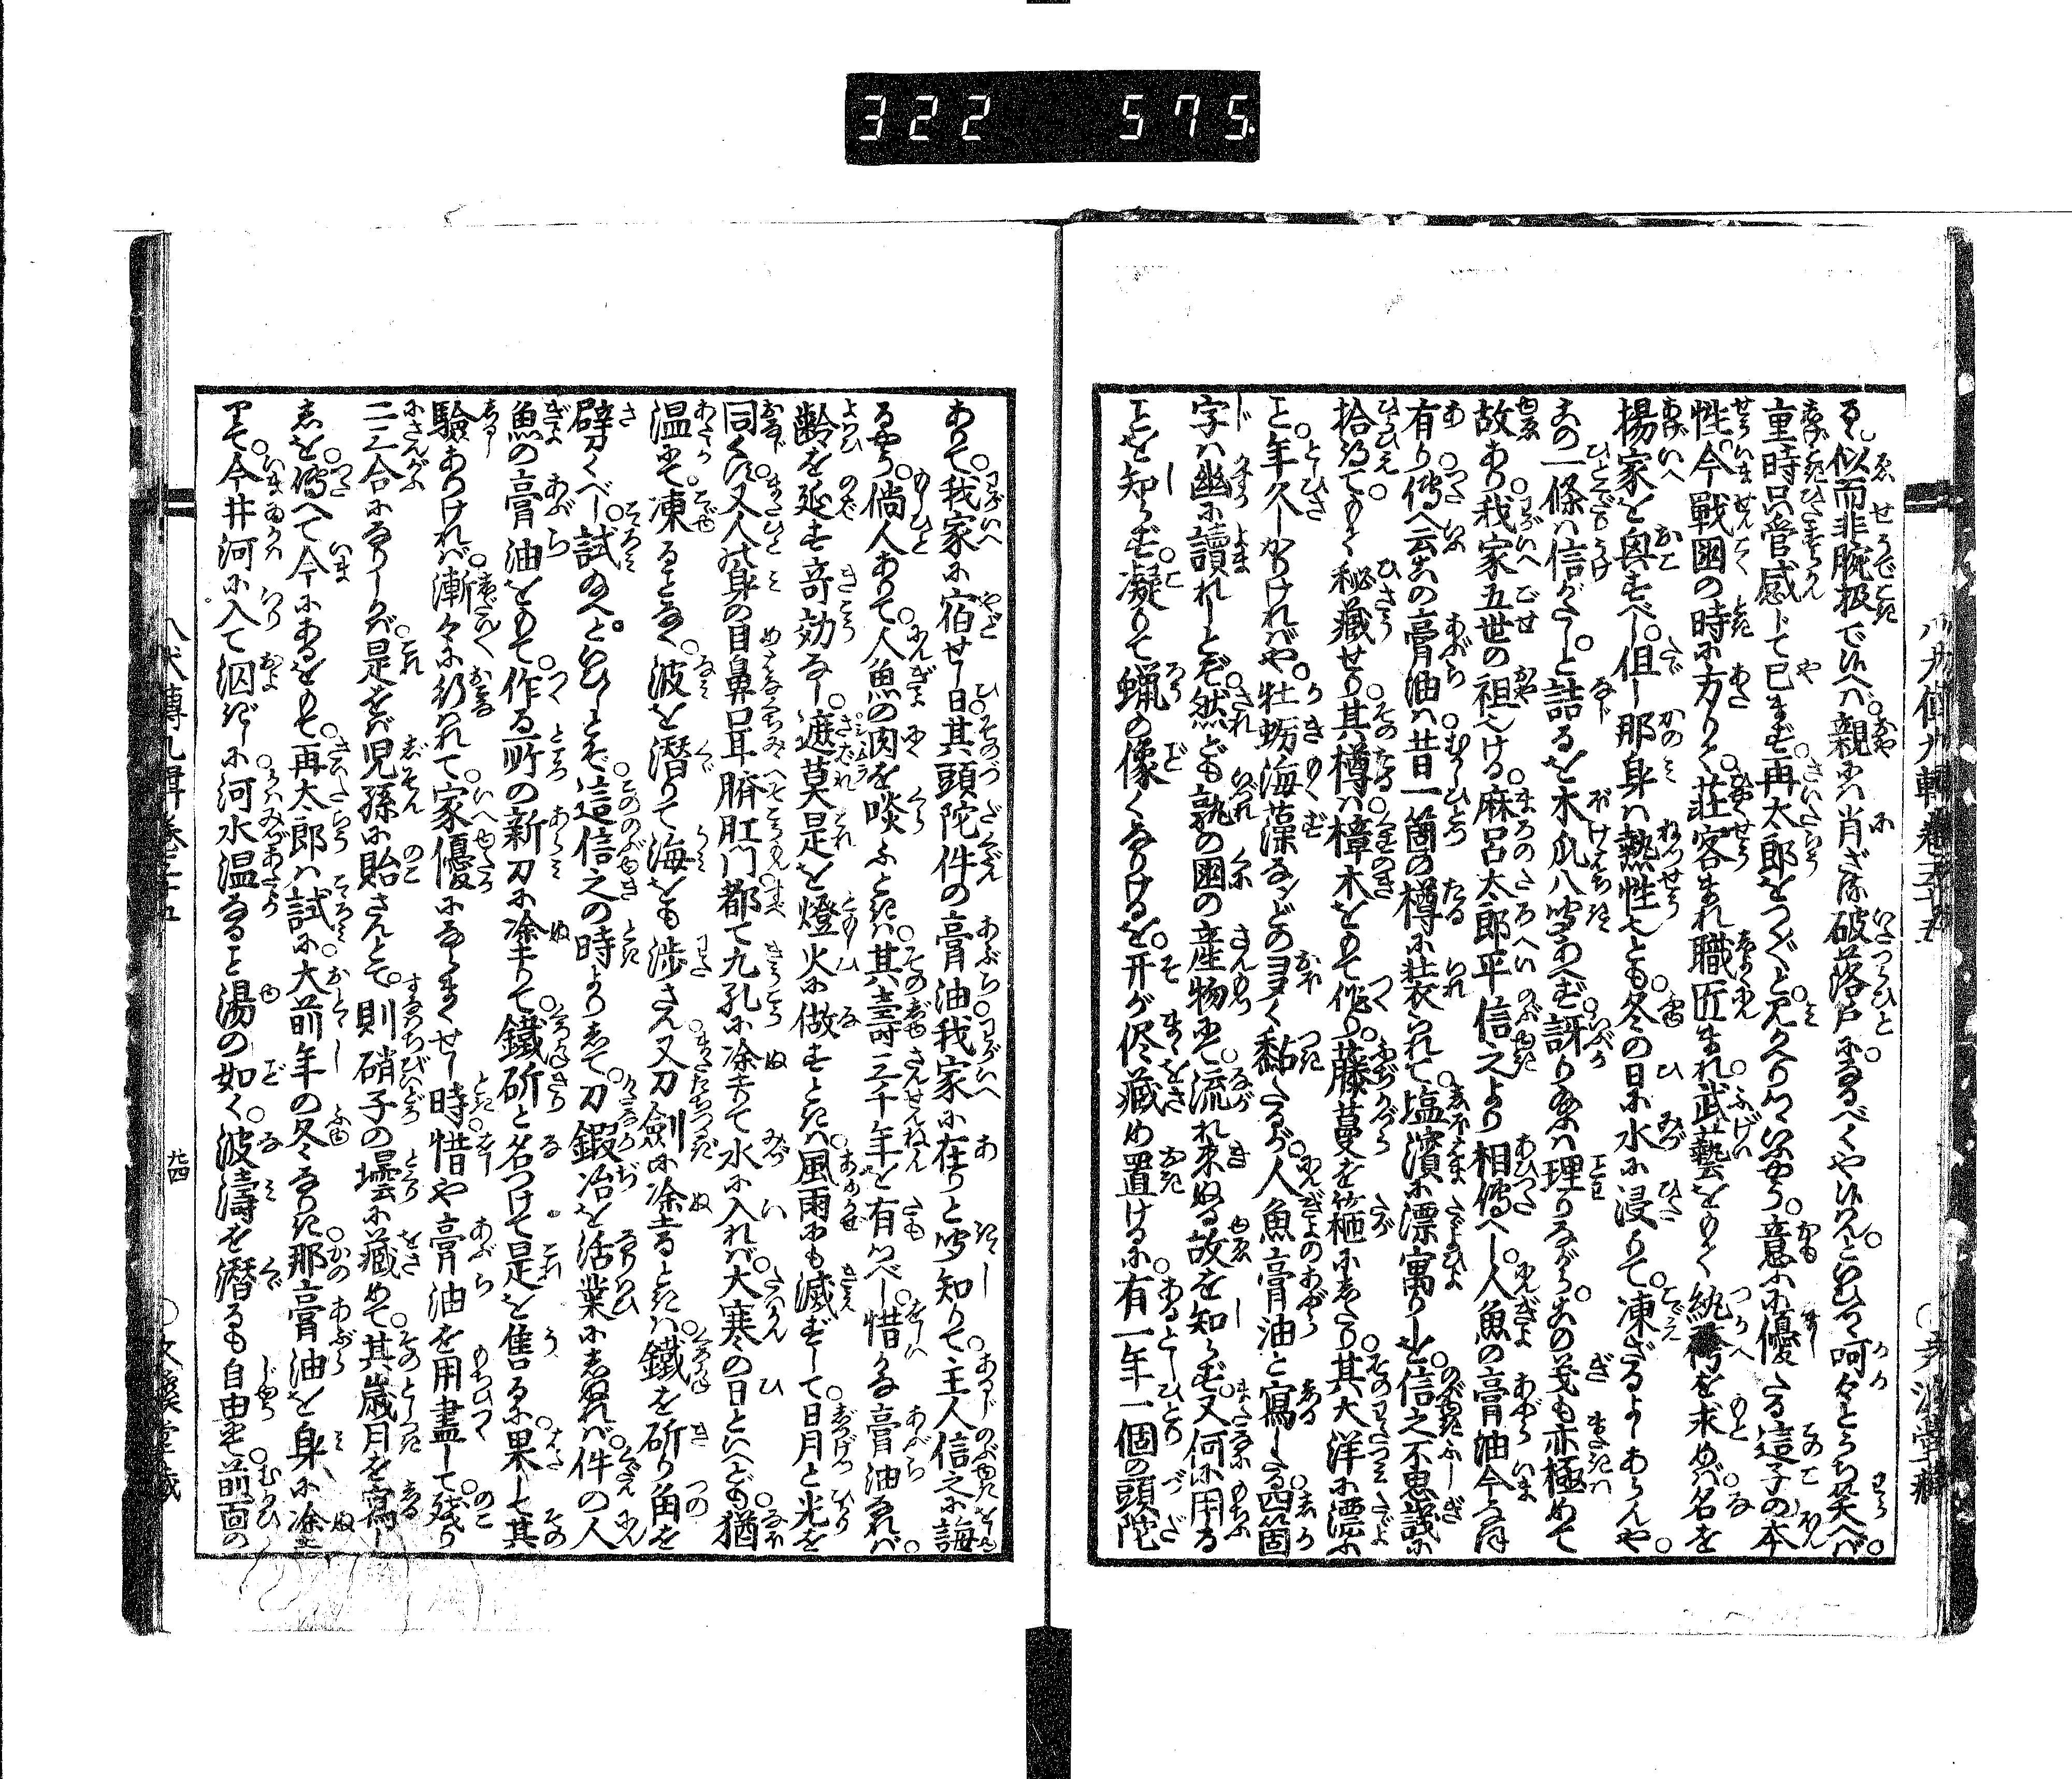 322 575
る。似而非腕扱でいへば。親にハ肖ざる破落戸にあるべくやいはん。といひつゝ呵々とうち笑へバ。
重時只管感じて已まず。再太郎をつく〴〵と見かへりつゝいふやう。意ふに優たる這子の本
性。今戰國の時に方りて。莊客まれ職匠まれ。武藝をもて紈袴を求めバ。名を
揚家をも興すべし。但し那身ハ熱性也とも。冬の日に水に浸りて。凍ざるよしあらんや。
この一條ハ信がたし。と詰るを木瓜八うち聞あへず。訝り給ふハ理りながら。この義も亦極めて
故あり。我家五世の祖也ける。麻呂太郎平信之より相傳へし。人魚の膏油今なほ
有り。傳へ云この膏油ハ。昔一箇の樽に裝れて。塩濱に漂寓りしを。信之不思議に
拾ひ得て。もて秘藏せり。其樽ハ。樟木をもて作り。藤蔓を箍にしたり。其大洋に漂ふ
こと。年久しかりければや。牡蛎海藻なンどのヨヨく黏たるが。人魚膏油と寫したる。四箇
字ハ幽に讀れしとぞ。然ども孰の國の産物にて。流れ來ぬる故を知らず。又何に用る
ことを知らず。凝りて蝋の像くなりけるを。そが侭藏め置けるに。有一年一個の頭陀
ありて。我家に宿せし日。其頭陀件の膏油。我家に在りと聞知りて。主人信之に誨
るやう。倘人ありて。人魚の肉を啖ふときハ。其壽三千年を有つべし。惜かな膏油なれバ。
齢を延す奇効なし。遮莫是を燈火に做すときハ。風雨にも滅ずして。日月と光を
同くす。又人の身の目鼻口耳臍肛門。都て九孔に塗りて水に入れバ。大寒の日といへども。猶
温にて。凍ることなく。波を潜りて海をも渉さん。又刀劍に塗るときハ。鐵を斫り角を
劈くべし。試給へ。といひしとぞ。這信之の時よりして。刀鍛冶を活業にしぬれバ。件の人
魚の膏油をもて。作る所の新刀に塗りて。鐵斫と名つけて。是を售るに果して其
驗ありければ。漸々に行れて。家優になるまくせし時。惜や膏油を用盡して。殘り
二三合になりしかバ。是をバ児孫に貽さんとて。則硝子の壜に藏めて。其歳月を寫し
しを。傳へて今にあるをもて。再太郎ハ試に。大前年の冬なりき。那膏油を身に塗
りて。今井河に入て泅ぎしに。河水温なること湯の如く。波濤を潜るも自由にて。前面の
八犬傳九輯卷三十五
廿四
○文溪堂藏